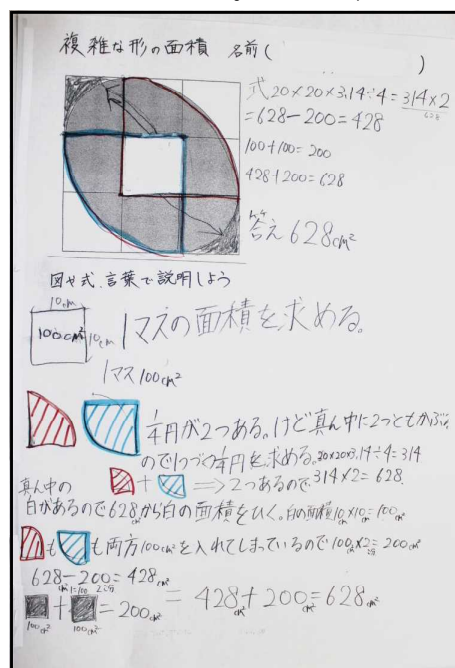 複雑な形の面積 名前( )
式20×20×3.14÷4=314×2
628
=628-200=428
100+100=200
428+200=628
答え 628cm²
図や式、言葉で説明しよう
10cm
100cm²
10cm
1マスの面積を求める。
1マス100cm²
1/4円が2つある。けど真ん中に2つともかぶる
ので1つづつ1/4円を求める。20×20×3.14÷4=314
+ ⇒ 2つあるので 314×2=628
真ん中の
白があるので628cm²から白の面積をひく。白の面積10cm×10cm=100cm²
も も両方100cm²を入れてしまっているので100cm²×2=200cm²
628-200=428cm²
+ =200cm²
100cm² 100cm²
= 428cm²+200cm²=628cm²